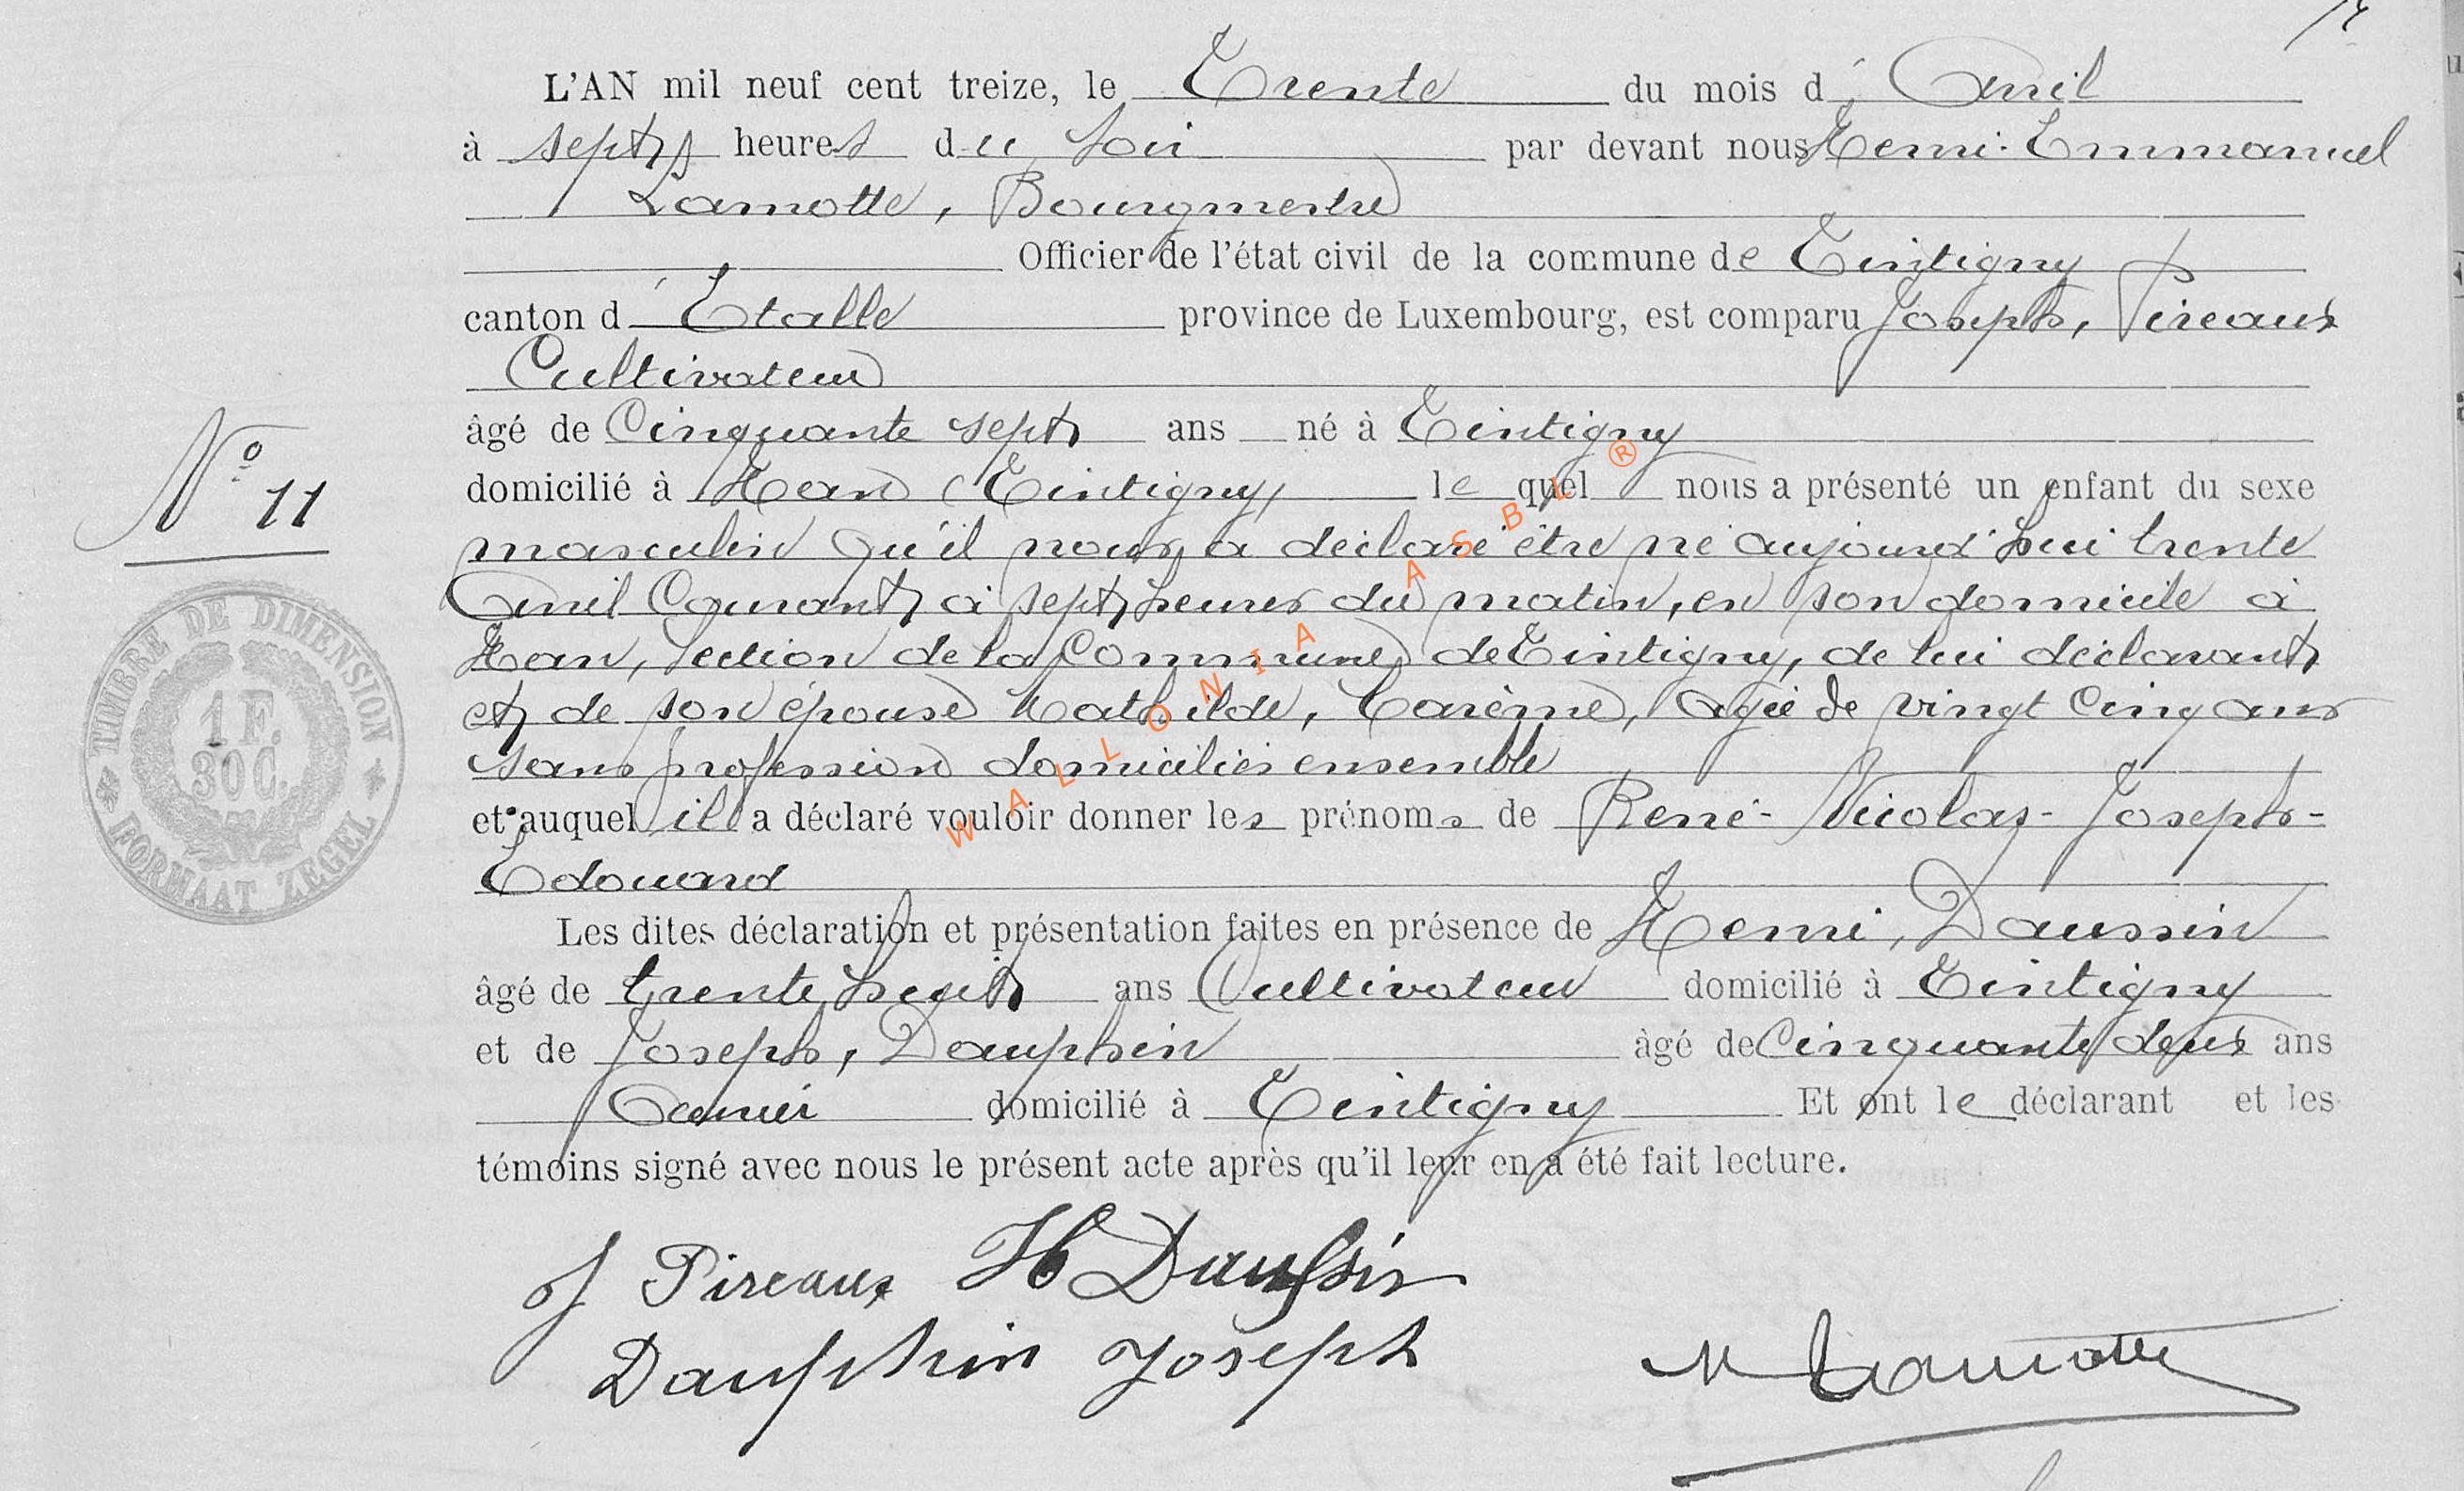 L'AN mil neuf cent treize, le Trente du mois d'Avril
à sept heures du soir par devant nous Henri-Emmanuel
Lamotte, Bourgmestre
Officier de l'état civil de la commune de Tintigny
canton d'Étalle province de Luxembourg, est comparu Joseph, Pireaux
Cultivateur
âgé de Cinquante sept ans né à Tintigny
domicilié à Han (Tintigny) lequel nous a présenté un enfant du sexe
N° 11
masculin qu'il nous a déclaré être né aujourd'hui trente
Avril Courant à sept heures du matin, en son domicile à
Han, section de la Commune de Tintigny, de lui déclarant
et de son épouse Mathilde, Carème, agée de vingt cinq ans
sans profession domiciliés ensemble
et auquel il a déclaré vouloir donner les prénoms de René-Nicolas-Joseph-
Edouard
Les dites déclaration et présentation faites en présence de Henri, Daussin
âgé de trente huit ans Cultivateur domicilié à Tintigny
et de Joseph, Dauphin âgé de Cinquante deux ans
domicilié à Tintigny Et ont le déclarant et les
témoins signé avec nous le présent acte après qu'il leur en a été fait lecture.
J Pireaux H Daussin
Dauphin Joseph
Lamotte
TIMBRE DE DIMENSION
1 F.
30 C.
FORMAAT ZEGEL
WALLONIA ASBL ®